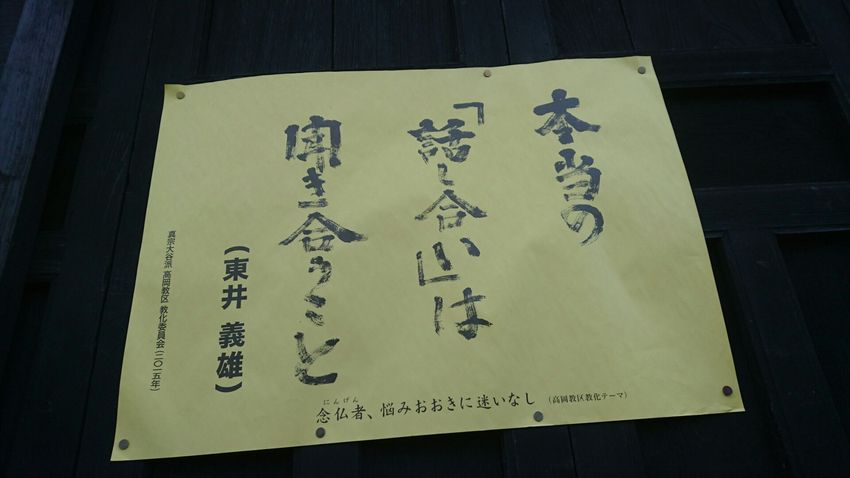 本当の
「話し合い」は
聞き合うこと
(東井 義雄)
真宗大谷派 高岡教区 教化委員会(二〇一五年)
にんげん
念仏者、悩みおおきに迷いなし (高岡教区教化テーマ)